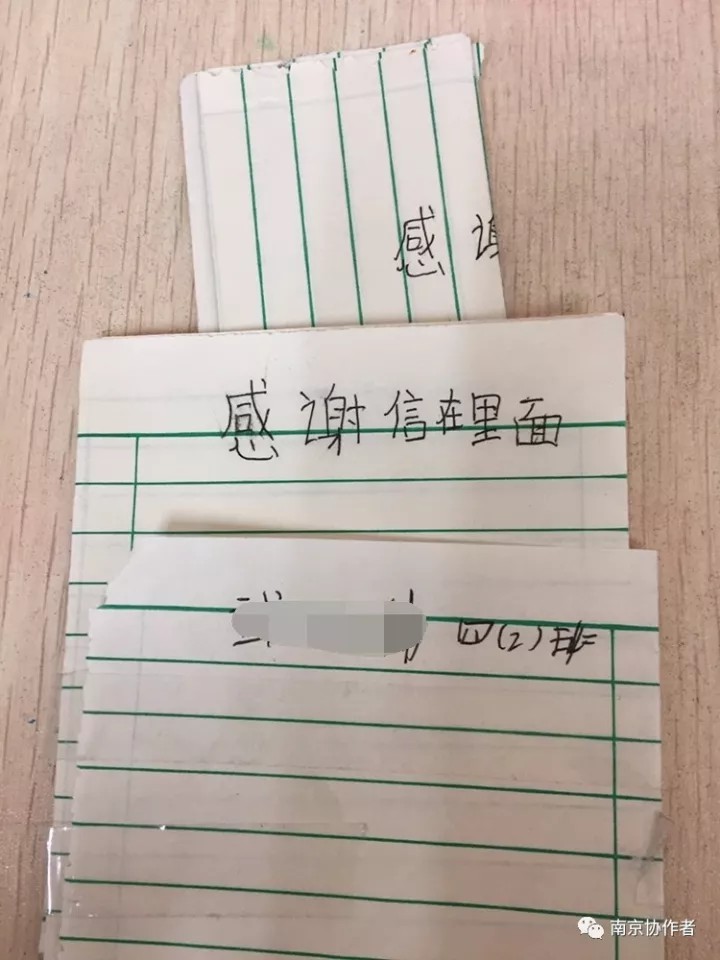 感
感谢信在里面
四(2)班
南京协作者